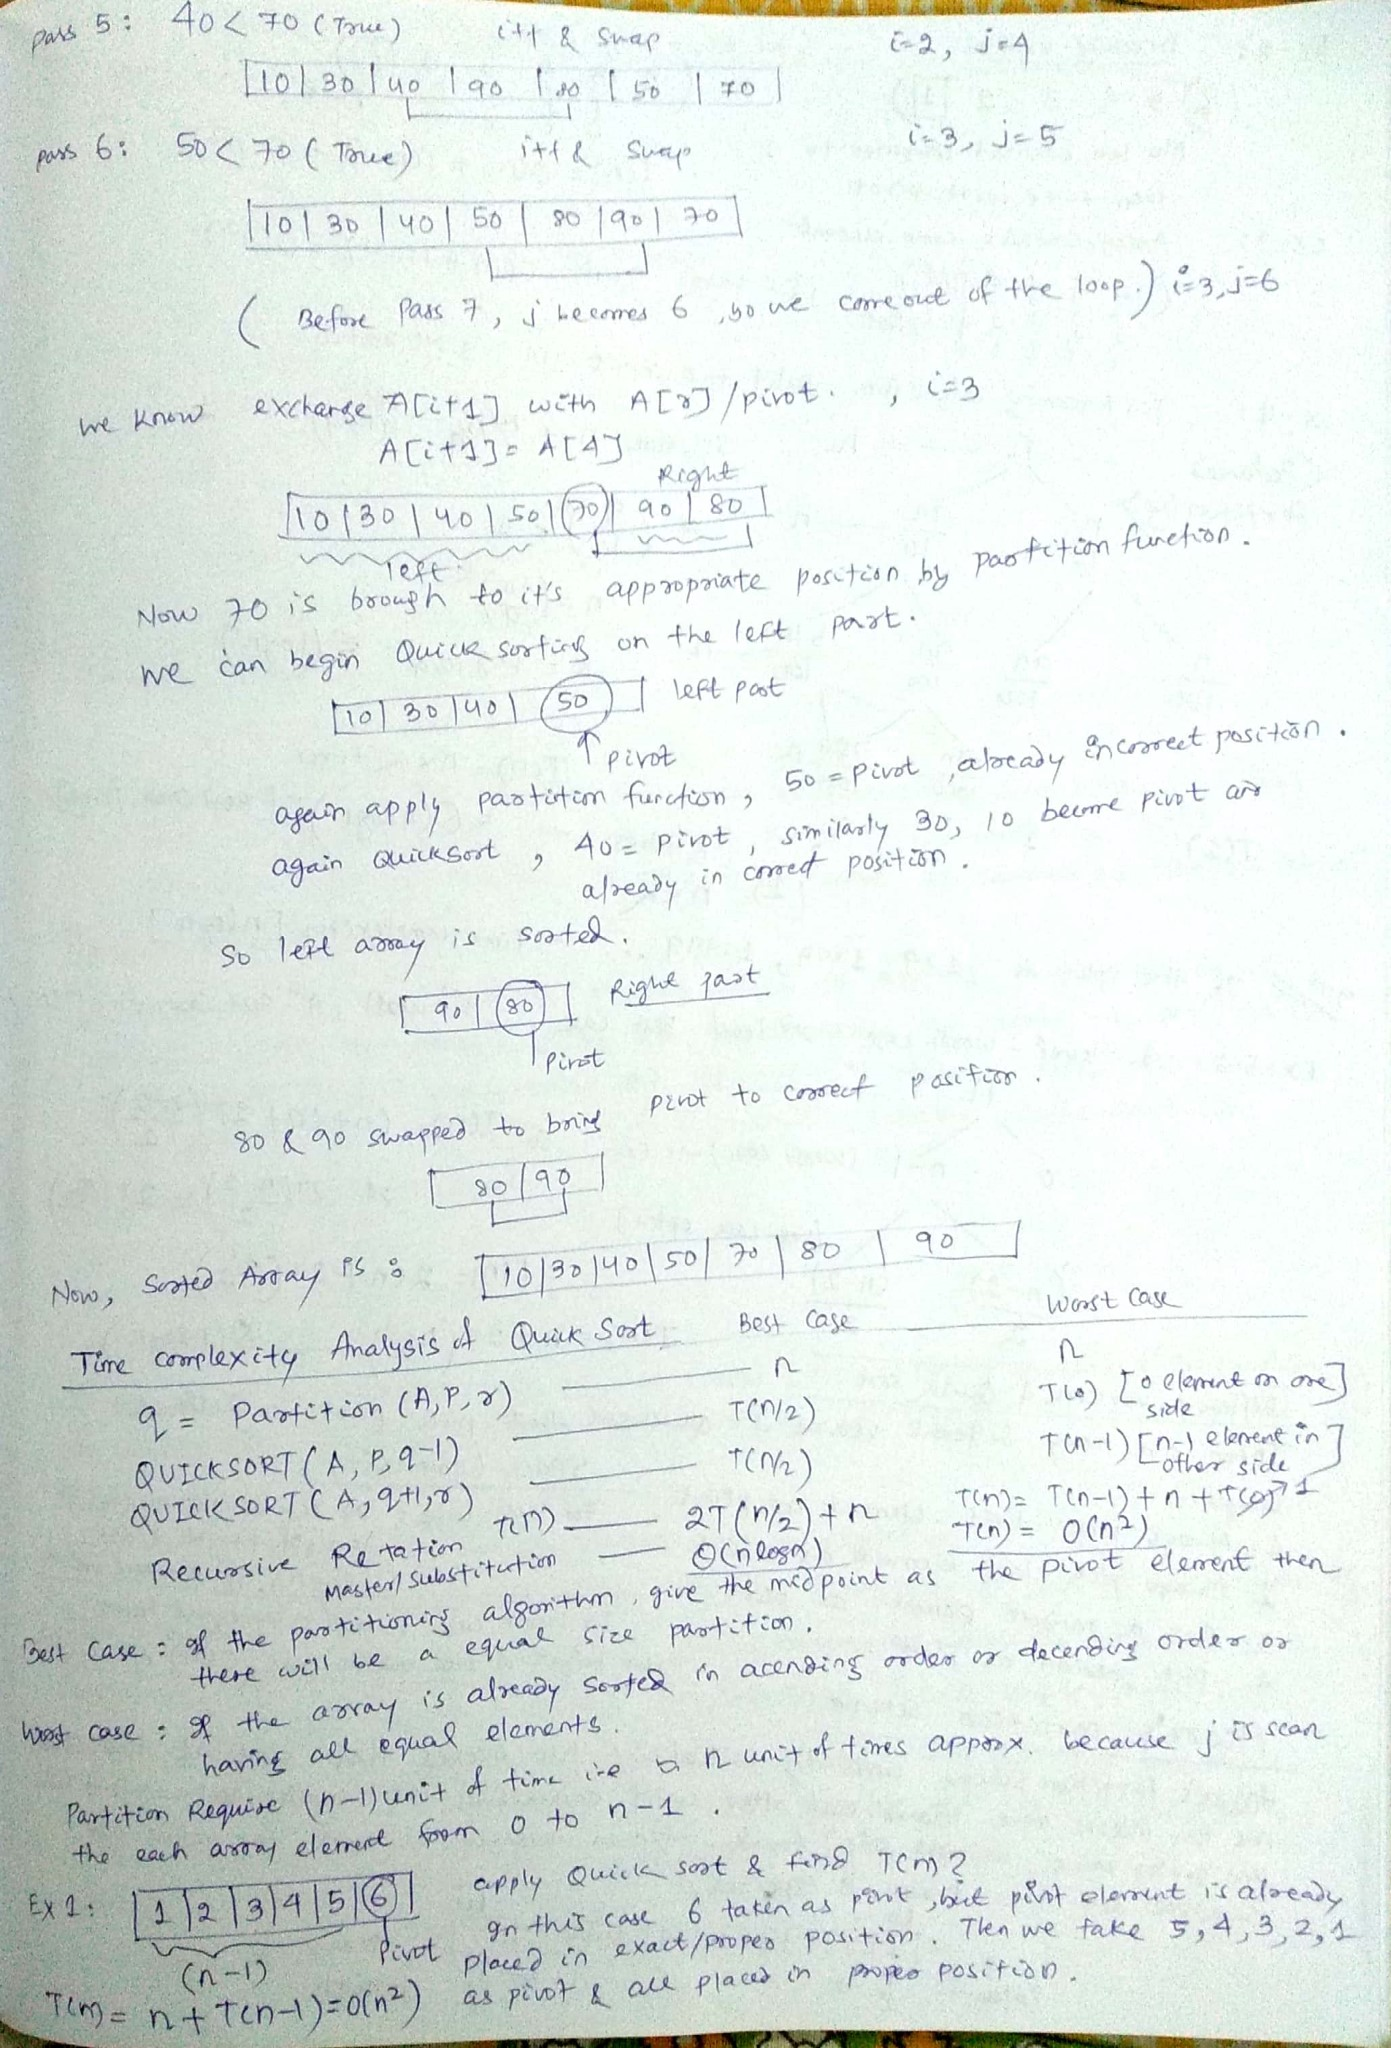 pass 5: 40 < 70 (True) i++ & swap i=2, j=4
10 | 30 | 40 | 90 | 80 | 50 | 70
pass 6: 50 < 70 (True) i++ & swap i=3, j=5
10 | 30 | 40 | 50 | 80 | 90 | 70
( Before Pass 7, j becomes 6, so we come out of the loop.) i=3, j=6
we know exchange A[i+1] with A[r]/pivot. , i=3
A[i+1] = A[4]
Right
10 | 30 | 40 | 50 | 70 | 90 | 80
left
Now 70 is brough to it's appropriate position by partition function.
we can begin Quick sorting on the left part.
10 | 30 | 40 | 50 left part
pivot
again apply partition function, 50 = pivot, already in correct position.
again Quicksort, 40 = pivot, similarly 30, 10 become pivot and
already in correct position.
So left array is sorted.
90 | 80 Right part
Pivot
80 & 90 swapped to bring pivot to correct position.
80 | 90
Now, Sorted Array is : 10 | 30 | 40 | 50 | 70 | 80 | 90
Time complexity Analysis of Quick Sort Best Case Worst Case
q = Partition (A, P, r) n n
QUICKSORT (A, P, q-1) T(n/2) T(0) [0 element on one side]
QUICKSORT (A, q+1, r) T(n/2) T(n-1) [n-1 element in other side]
Recursive Retation T(n) 2T(n/2)+n T(n) = T(n-1)+n+T(0) 1
Master/Substitution Θ(nlogn) T(n) = O(n²)
Best Case : If the partitioning algorithm, give the midpoint as the pivot element then
there will be a equal size partition.
Worst case : If the array is already sorted in acending order or decending order or
having all equal elements.
Partition Require (n-1) unit of time i.e n unit of times approx. because j is scan
the each array element from 0 to n-1.
Ex 1: 1 | 2 | 3 | 4 | 5 | 6 apply Quick sort & find T(n)?
Pivot In this case 6 taken as pivot, but pivot element is already
(n-1) placed in exact/proper position. Then we take 5, 4, 3, 2, 1
T(n) = n + T(n-1) = O(n²) as pivot & all placed in proper position.